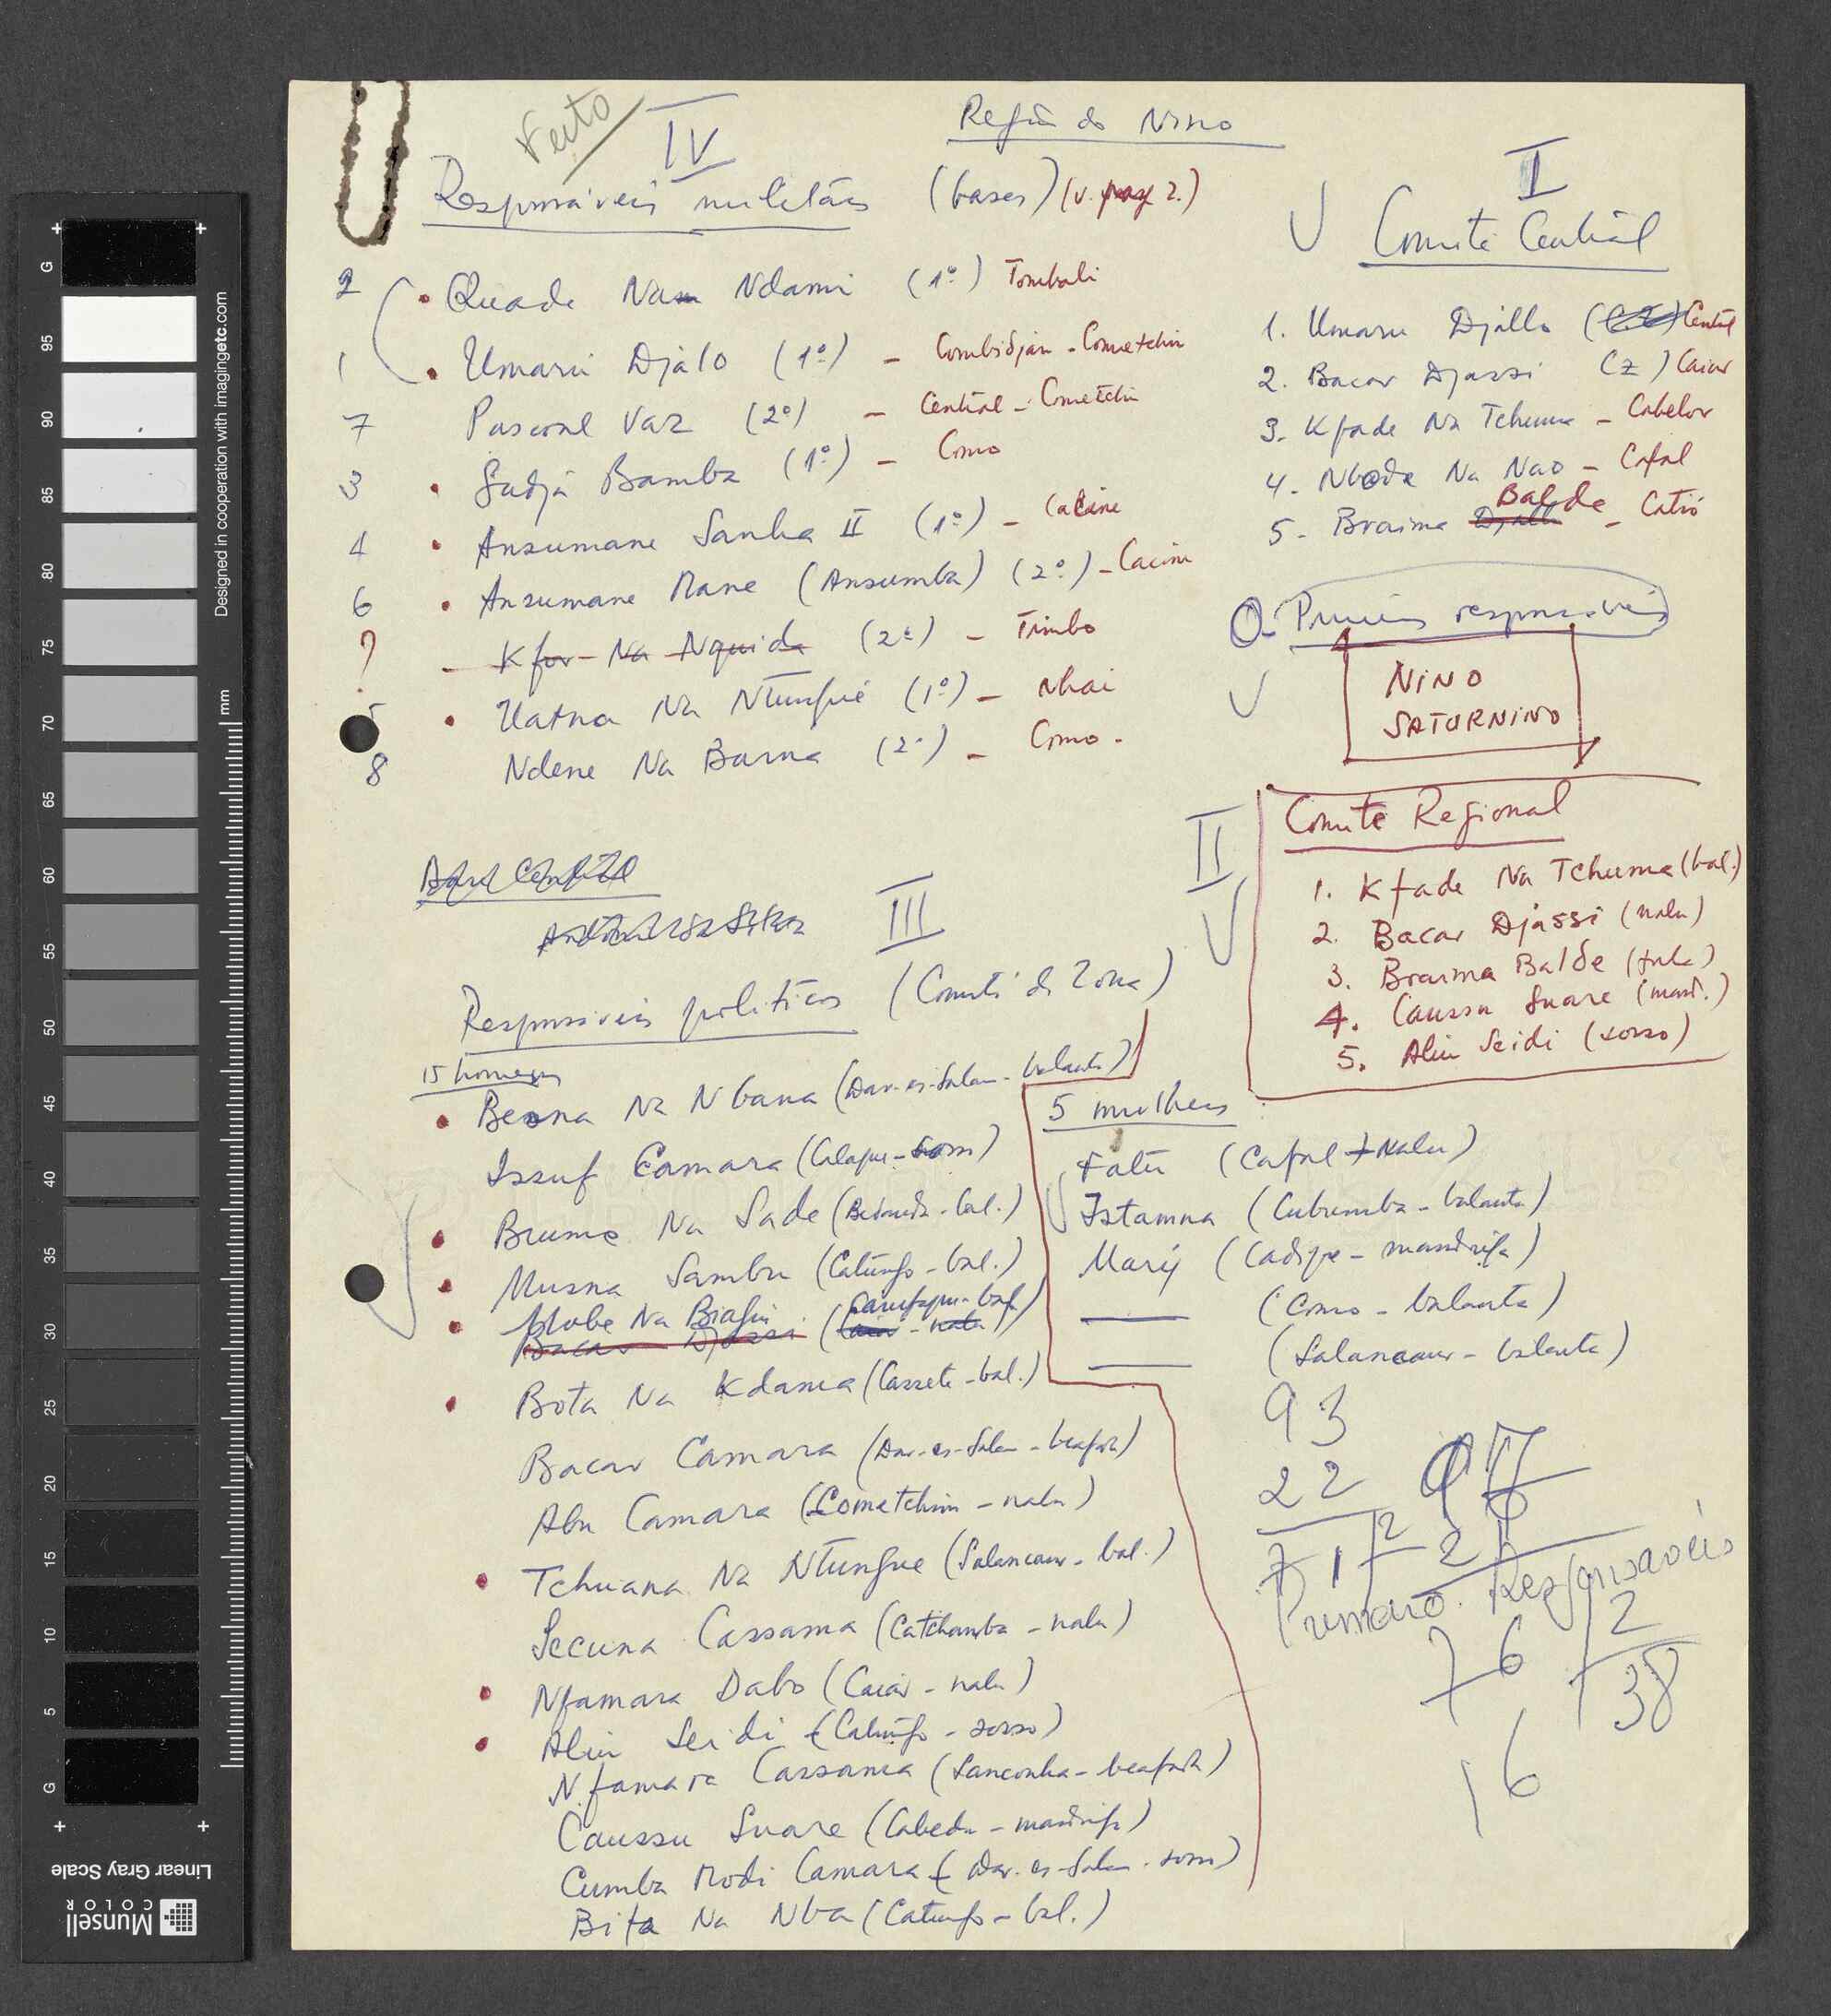 Feito
Região do Nino
IV
Responsáveis militares (bases) (v. pag 2.)
2 Quade Na Ndami (1º) Tombali
1 Umaru Djalo (1º) - Combidjan - Cometchin
7 Pascoal Vaz (2º) - Central - Cometchin
3 Sadjá Bamba (1º) - Como
4 Ansumane Sanha II (1º) - Cacine
6 Ansumane Mane (Ansumba) (2º) - Cacine
? Kfor Na Nquida (2º) - Timbo
5 Uatna Na Ntungué (1º) - Nhai
8 Ndene Na Barna (2º) - Como -
I
Comité Central
1. Umaru Djallo Central
2. Bacar Djassi (Z) Caiar
3. Kfade Na Tchuma - Cabelov
4. Nbode Na Nao - Cafal
5 - Braima Djallo Balde - Catió
O - Primeiros responsáveis
NINO
SATURNINO
II
Comité Regional
1. Kfade Na Tchuma (bal.)
2. Bacar Djassi (nalu)
3. Braima Balde (fula)
4. Caussu Suare (mand.)
5. Aliu Seidi (sosso)
III
Responsáveis políticos (Comité de Zona)
15 homens
Besna Na Nbana (Dar-es-Salam - balanta)
Issuf Camara (Calaque - sosso)
Brume Na Sade (Bedanda - bal.)
Musna Sambu (Catungo - bal.)
Nobe Na Biafin (Camfaque - bal.)
Bacar Djassi (Caiar - nalu)
Bota Na Kdama (Cassete - bal.)
Bacar Camara (Dar-es-Salam - beafada)
Abu Camara (Cometchim - nalu)
Tchuana Na Ntungue (Salancaur - bal.)
Secuna Cassama (Catchamba - nalu)
Nfamara Dabo (Caiar - nalu)
Aliu Seidi (Catungo - sosso)
Nfamara Cassama (Sanconha - beafada)
Caussu Suare (Cabedu - mandinga)
Cumba Modi Camara (Dar-es-Salam - sosso)
Bita Na Nba (Catungo - bal.)
5 mulheres
Fatú (Cafal - Nalu)
Istamna (Cubumba - balanta)
Mary (Cadique - mandinga)
— (Como - balanta)
— (Salancaur - balanta)
93
22
71
2
Primeiro Responsáveis
76 2
38
16
Designed in cooperation with imagingetc.com
mm
Linear Gray Scale
Munsell
COLOR
G 95 90 85 80 75 70 65 60 55 50 45 40 35 30 25 20 15 10 5 G